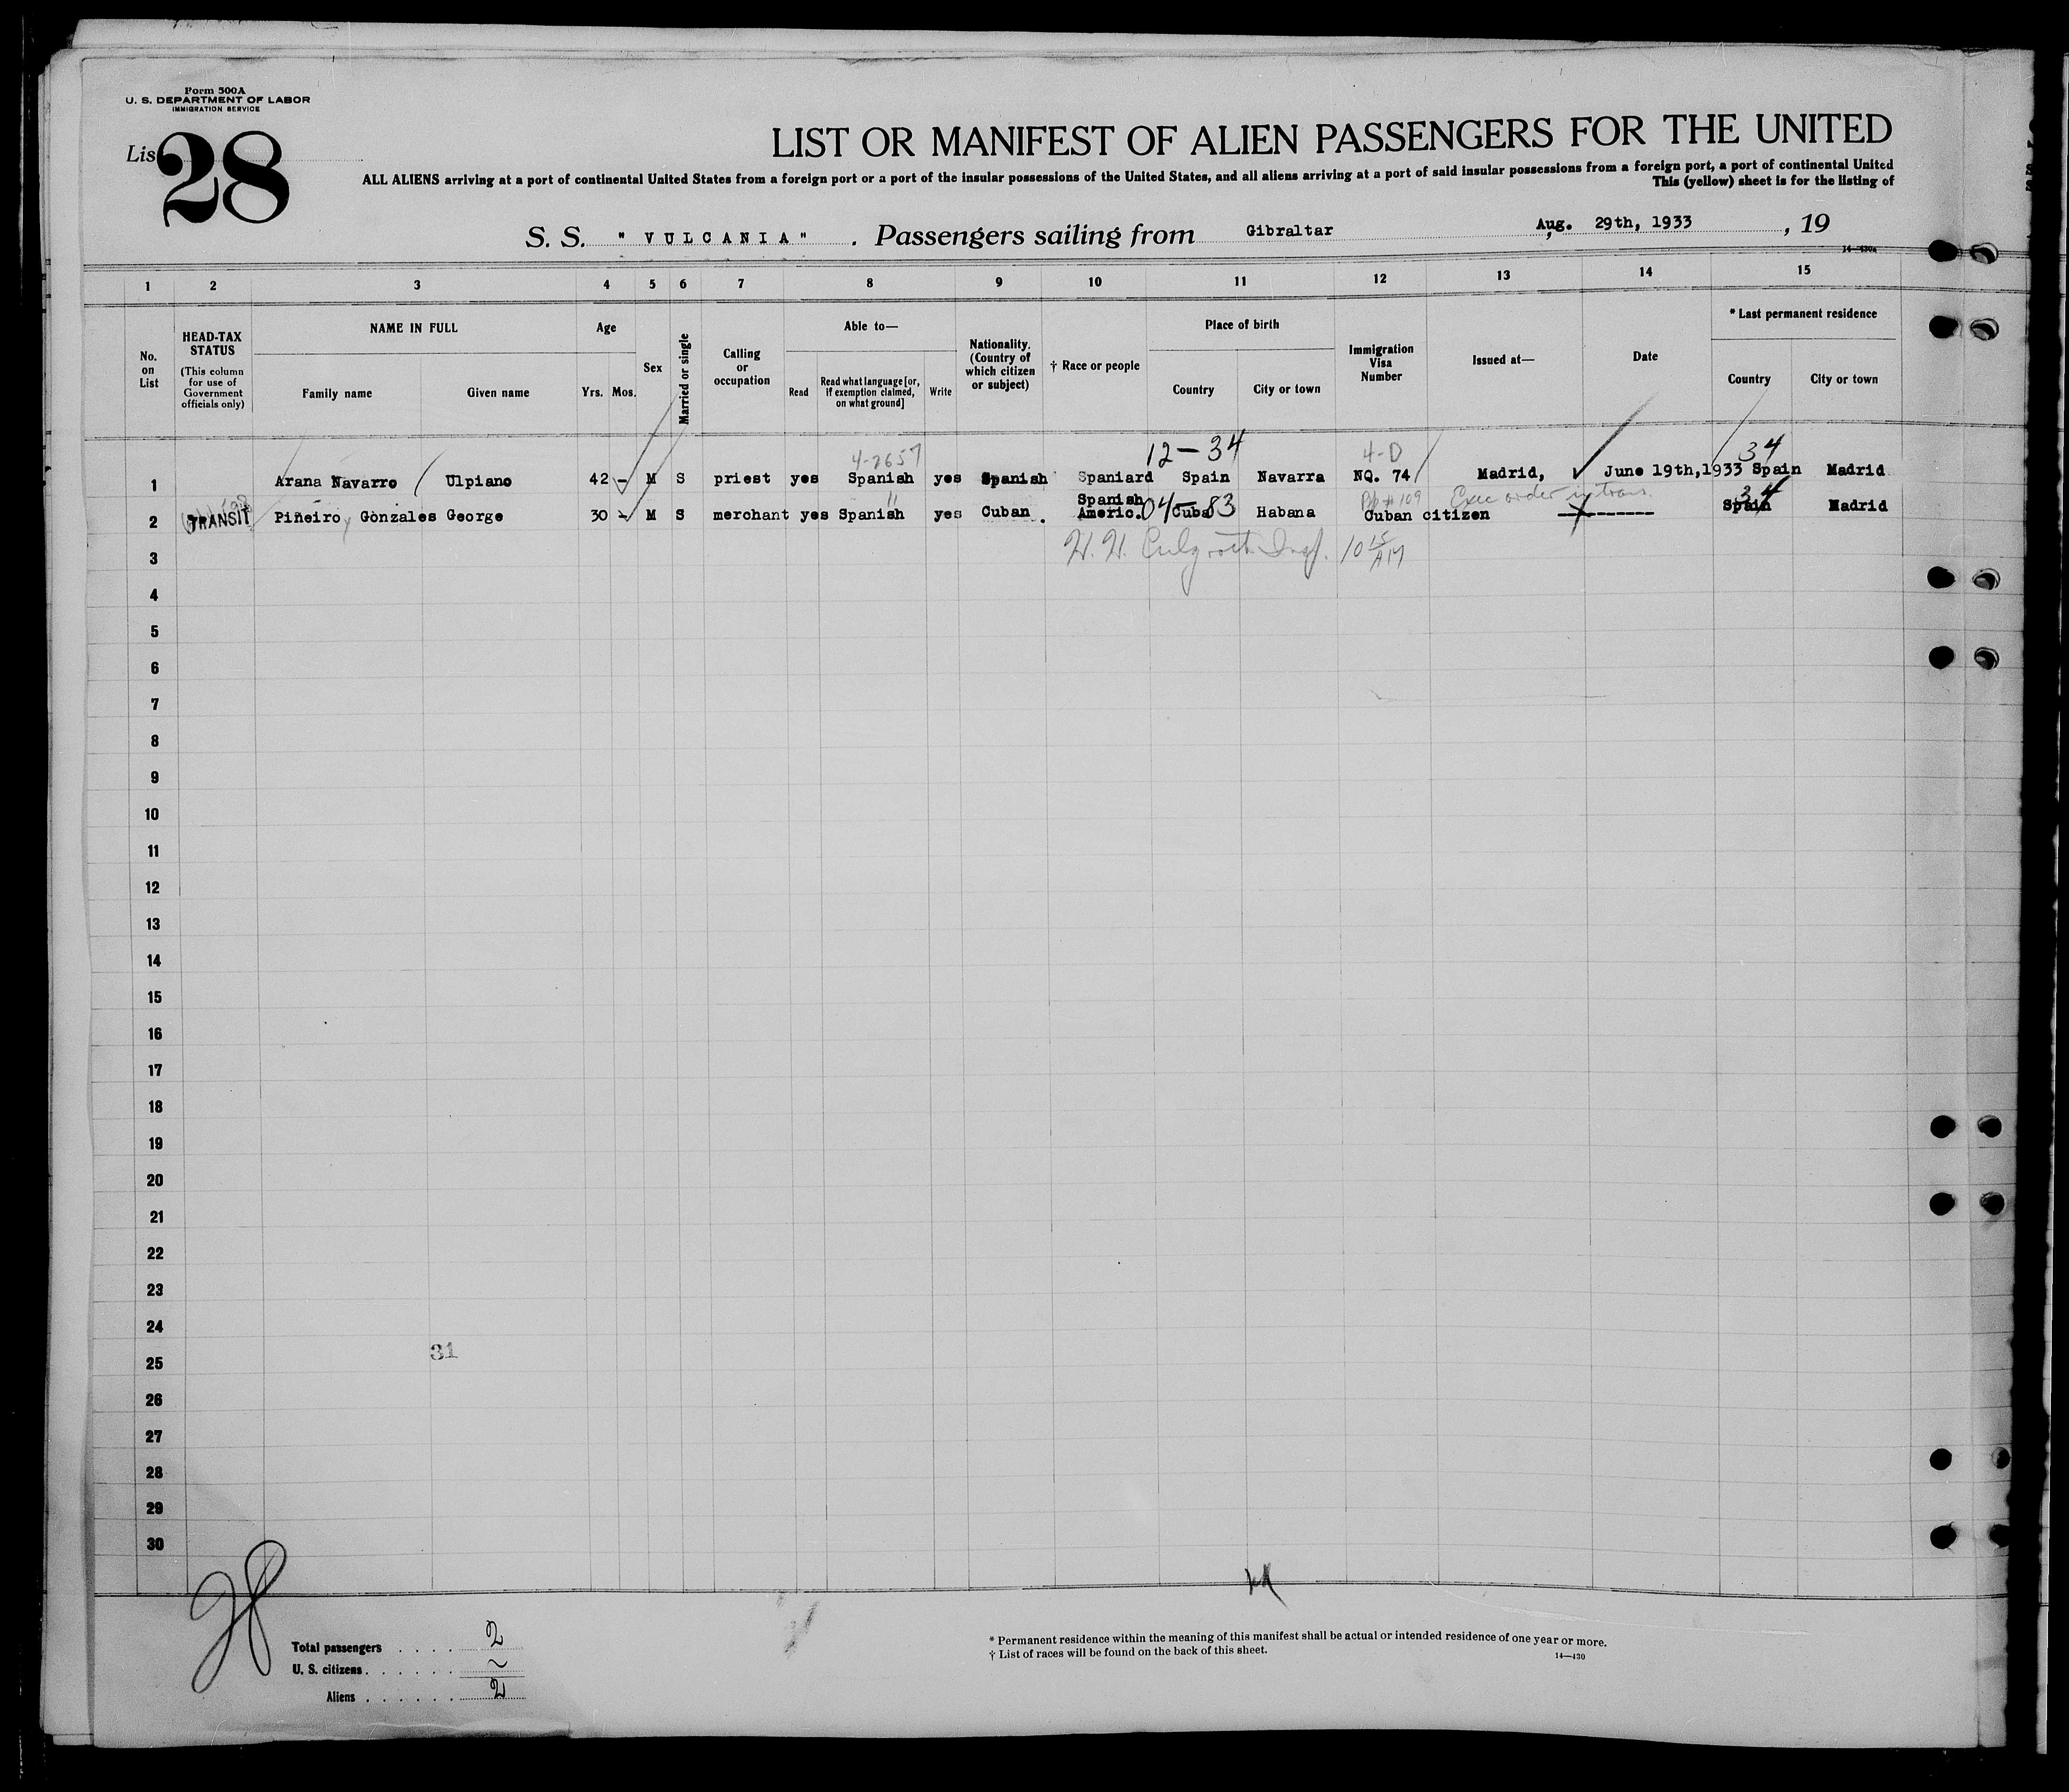 Form 500A
U. S. DEPARTMENT OF LABOR
IMMIGRATION SERVICE
Lis 28
LIST OR MANIFEST OF ALIEN PASSENGERS FOR THE UNITED
ALL ALIENS arriving at a port of continental United States from a foreign port or a port of the insular possessions of the United States, and all aliens arriving at a port of said insular possessions from a foreign port, a port of continental United
This (yellow) sheet is for the listing of
S. S. "VULCANIA" . Passengers sailing from Gibraltar Aug. 29th, 1933 , 19
14—430a
1 2 3 4 5 6 7 8 9 10 11 12 13 14 15
No. on List
HEAD-TAX STATUS
(This column for use of Government officials only)
NAME IN FULL
Family name Given name
Age
Yrs. Mos.
Sex
Married or single
Calling or occupation
Able to—
Read
Read what language [or, if exemption claimed, on what ground]
Write
Nationality. (Country of which citizen or subject)
† Race or people
Place of birth
Country City or town
Immigration Visa Number
Issued at—
Date
* Last permanent residence
Country City or town
4-2657 12-34 4-D 34
1 Arana Navarro Ulpiano 42 - M S priest yes Spanish yes Spanish Spaniard Spain Navarra NQ. 74 Madrid, June 19th,1933 Spain Madrid
2 TRANSIT Piñeiro y Gonzales George 30 - M S merchant yes Spanish yes Cuban . Spanish Americ. 04 Cuba 83 Habana Cuban citizen --------- Spain 34 Madrid
Exec order in trans.
3 H. H. Insp. 10 15 AM
4
5
6
7
8
9
10
11
12
13
14
15
16
17
18
19
20
21
22
23
24
31
25
26
27
28
29
30
Total passengers . . . . 2
U. S. citizens . . . . . . ~
Aliens . . . . . . 2
* Permanent residence within the meaning of this manifest shall be actual or intended residence of one year or more.
† List of races will be found on the back of this sheet.
14—430